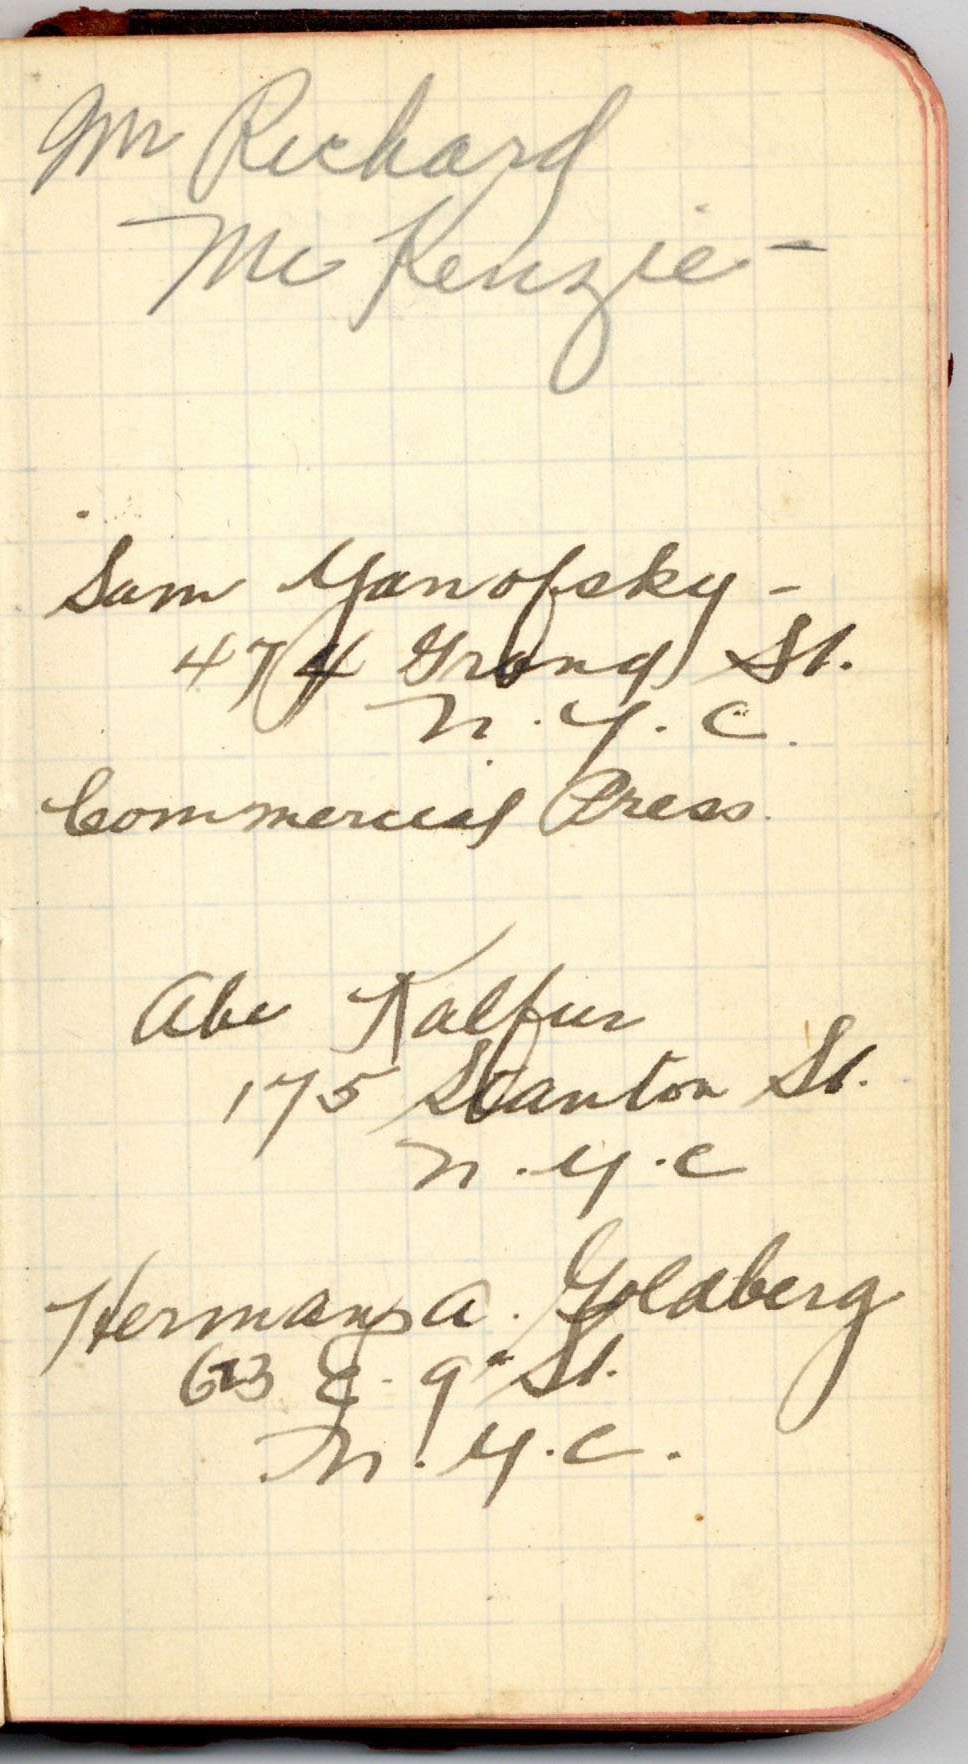 Mr Richard
McKenzie -
Sam Yanofsky -
474 Grand St.
N.Y.C.
Commercial Press
Abe Kalfur
175 Stanton St.
N.Y.C
Herman A. Goldberg
E. 9" St.
N.Y.C.